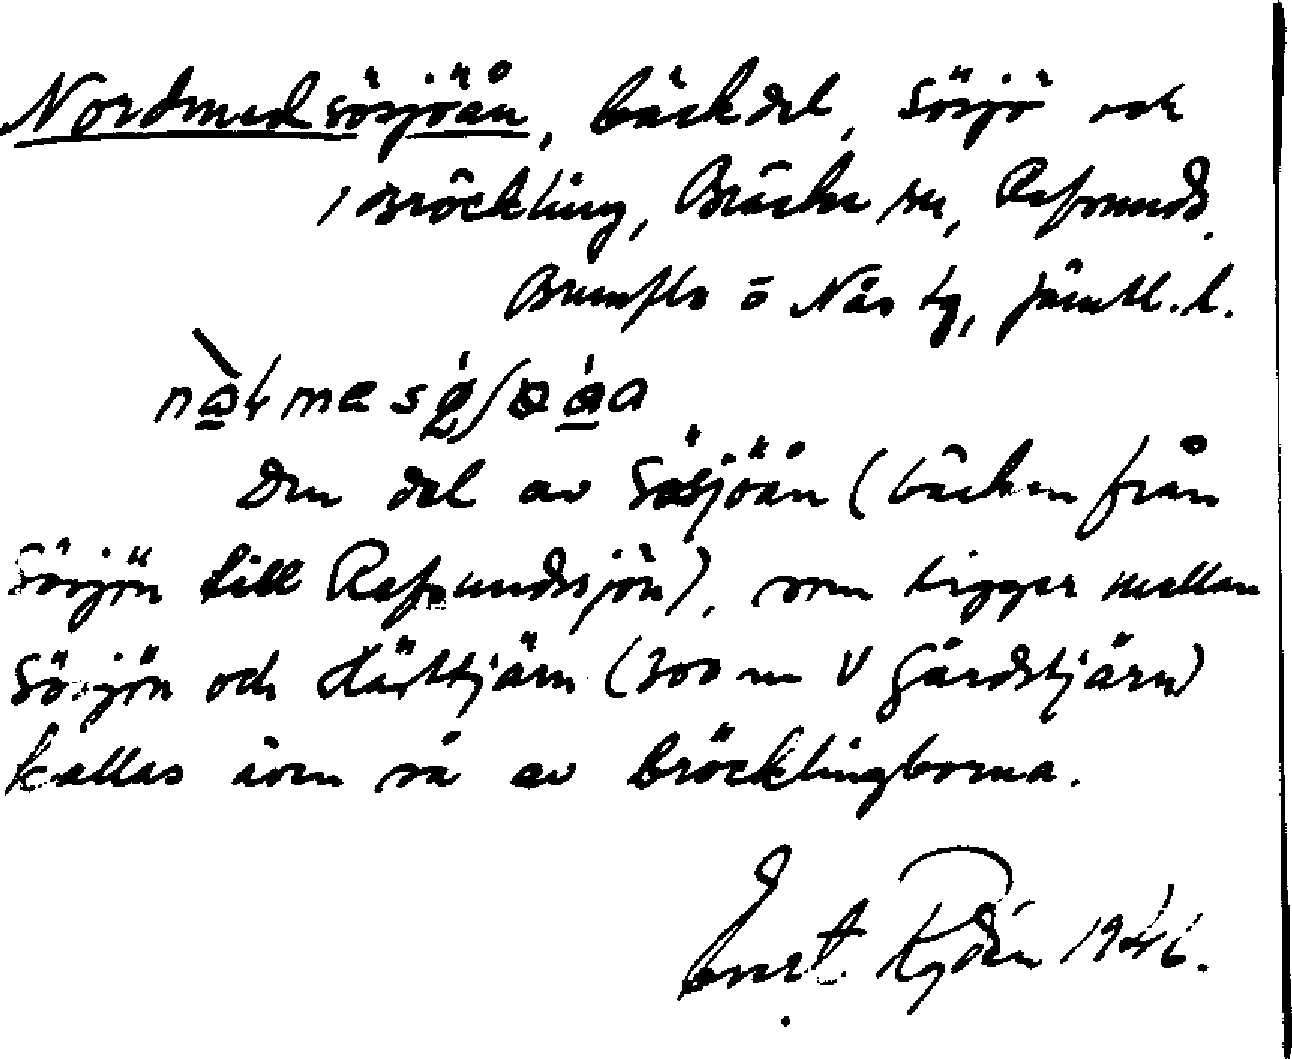 Nordmedsösjöån, bäckdel, Sösjö och
Bröckling, Bräcke sn, Refsunds,
Brunflo o Näs tg, Jämtl. l.
Den del av Sösjöån (bäcken från
Sösjön till Refsundssjön), som ligger mellan
Sösjön och Hästtjärn (300 m V Gårdstjärn)
kallas även så av bröcklingborna.
Ernst Rydén 1946.